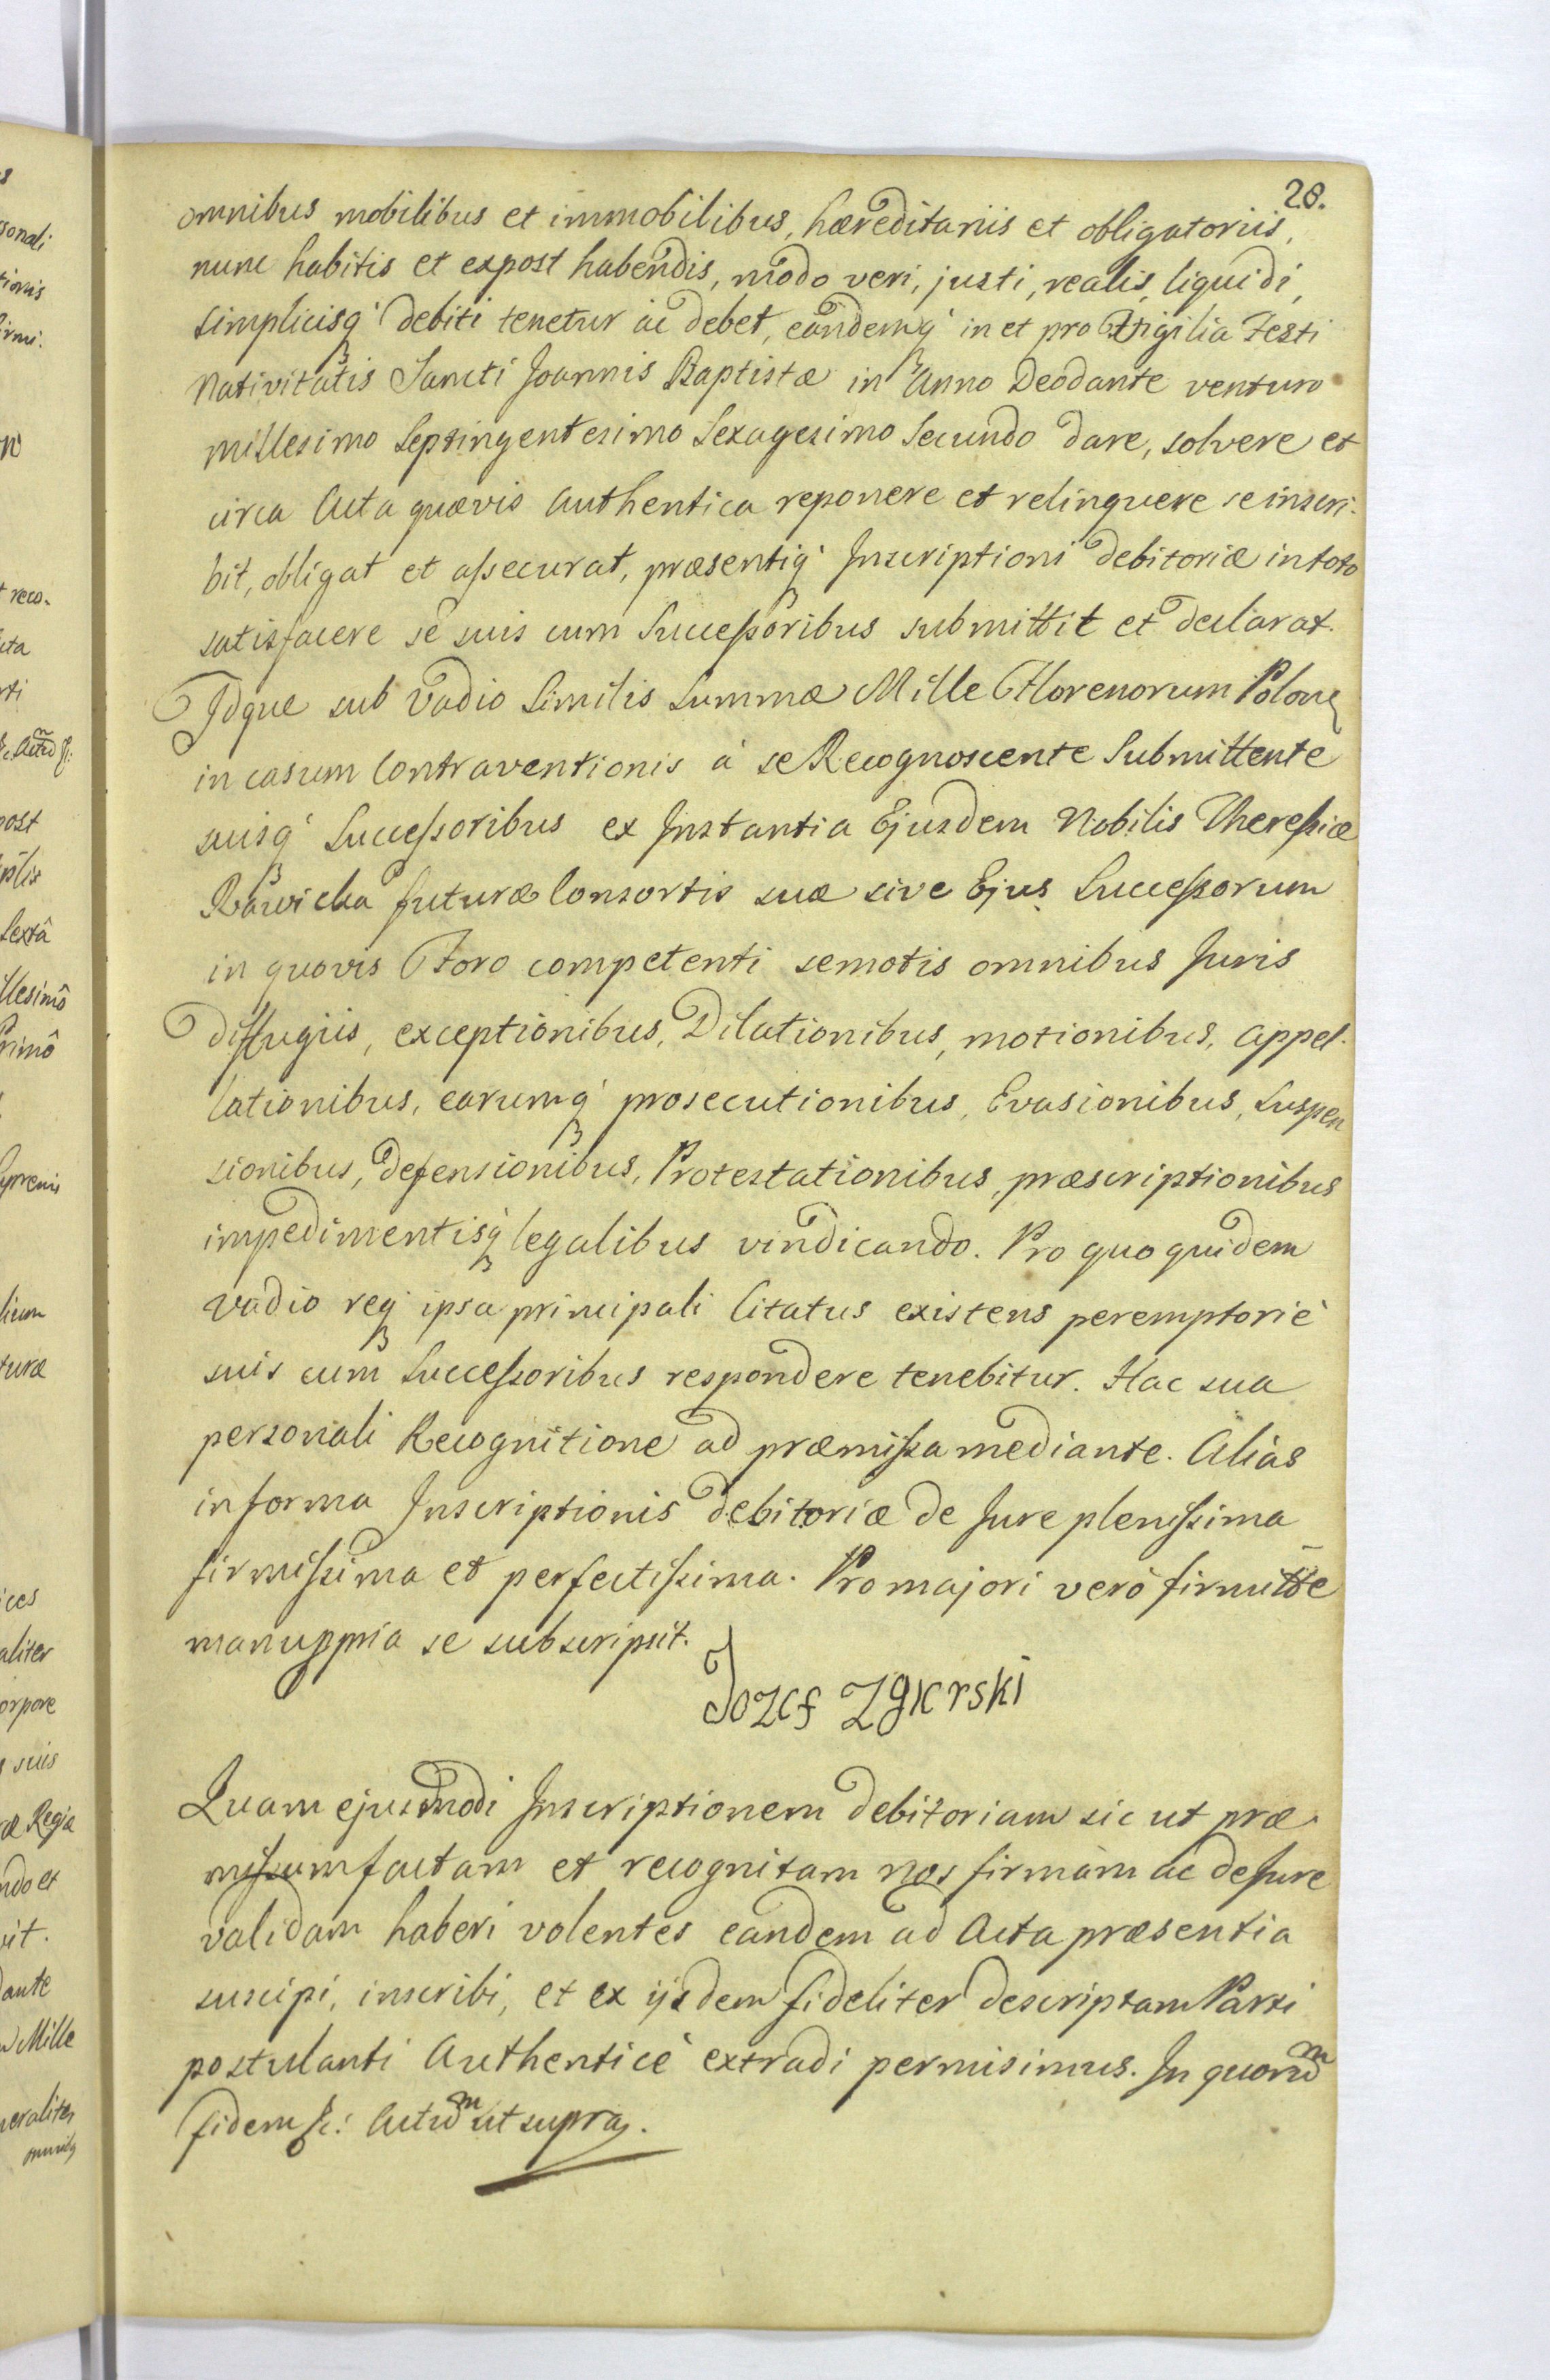 28.
omnibus mobilibus et immobilibus, hæreditariis et obligatoriis,
nunc habitis et expost habendis, modo veri, justi, realis, liquidi,
simplicisq́ debiti tenetur ac debet, eandemq́ in et pro Vigilia Festi
Nativitatis Sancti Joannis Baptistæ in Anno Deodante venturo
millesimo Septingentesimo Sexagesimo Secundo dare, solvere et
circa Acta quævis Authentica reponere et relinquere se inscri-
bit, obligat et assecurat, præsentiq́ Inscriptioni debitoriæ in toto
satisfacere se suis cum Successoribus submittit et declarat.
Idque sub vadio similis summæ Mille Florenorum Polon
in casum Contraventionis à se Recognoscente Submittente
suisq́ Successoribus ex Instantia Ejusdem Nobilis Theressiæ
Rawicka futuræ Consortis suæ sive Ejus Successorum
in quovis Foro competenti semotis omnibus Juris
diffugiis, exceptionibus, Dilationibus, motionibus, appel-
lationibus, earumq́ prosecutionibus, Evasionibus, suspen
sionibus, defensionibus, Protestationibus, præscriptionibus
impedimentisq́ legalibus vindicando. Pro quo quidem
vadio req́ ipsa principali Citatus existens peremptoriè
suis cum Successoribus respondere tenebitur. Hac sua
personali Recognitione ad præmissa mediante. Aliàs
in forma Inscriptionis debitoriæ de Jure plenissima
firmissima et perfectissima. Pro majori verò firmitte
manuppria se subscripsit.
Jozef Zgierski
Quam ejusmodi Inscriptionem debitoriam sic ut præ
missum factam et recognitam nos firmam ac de Jure
validam haberi volentes eandem ad Acta præsentia
suscipi, inscribi, et ex ijsdem fideliter descriptam Parti
postulanti Authenticè extradi permisimus. In quoru͠m
fidem &c: Actu͠m ut supra.